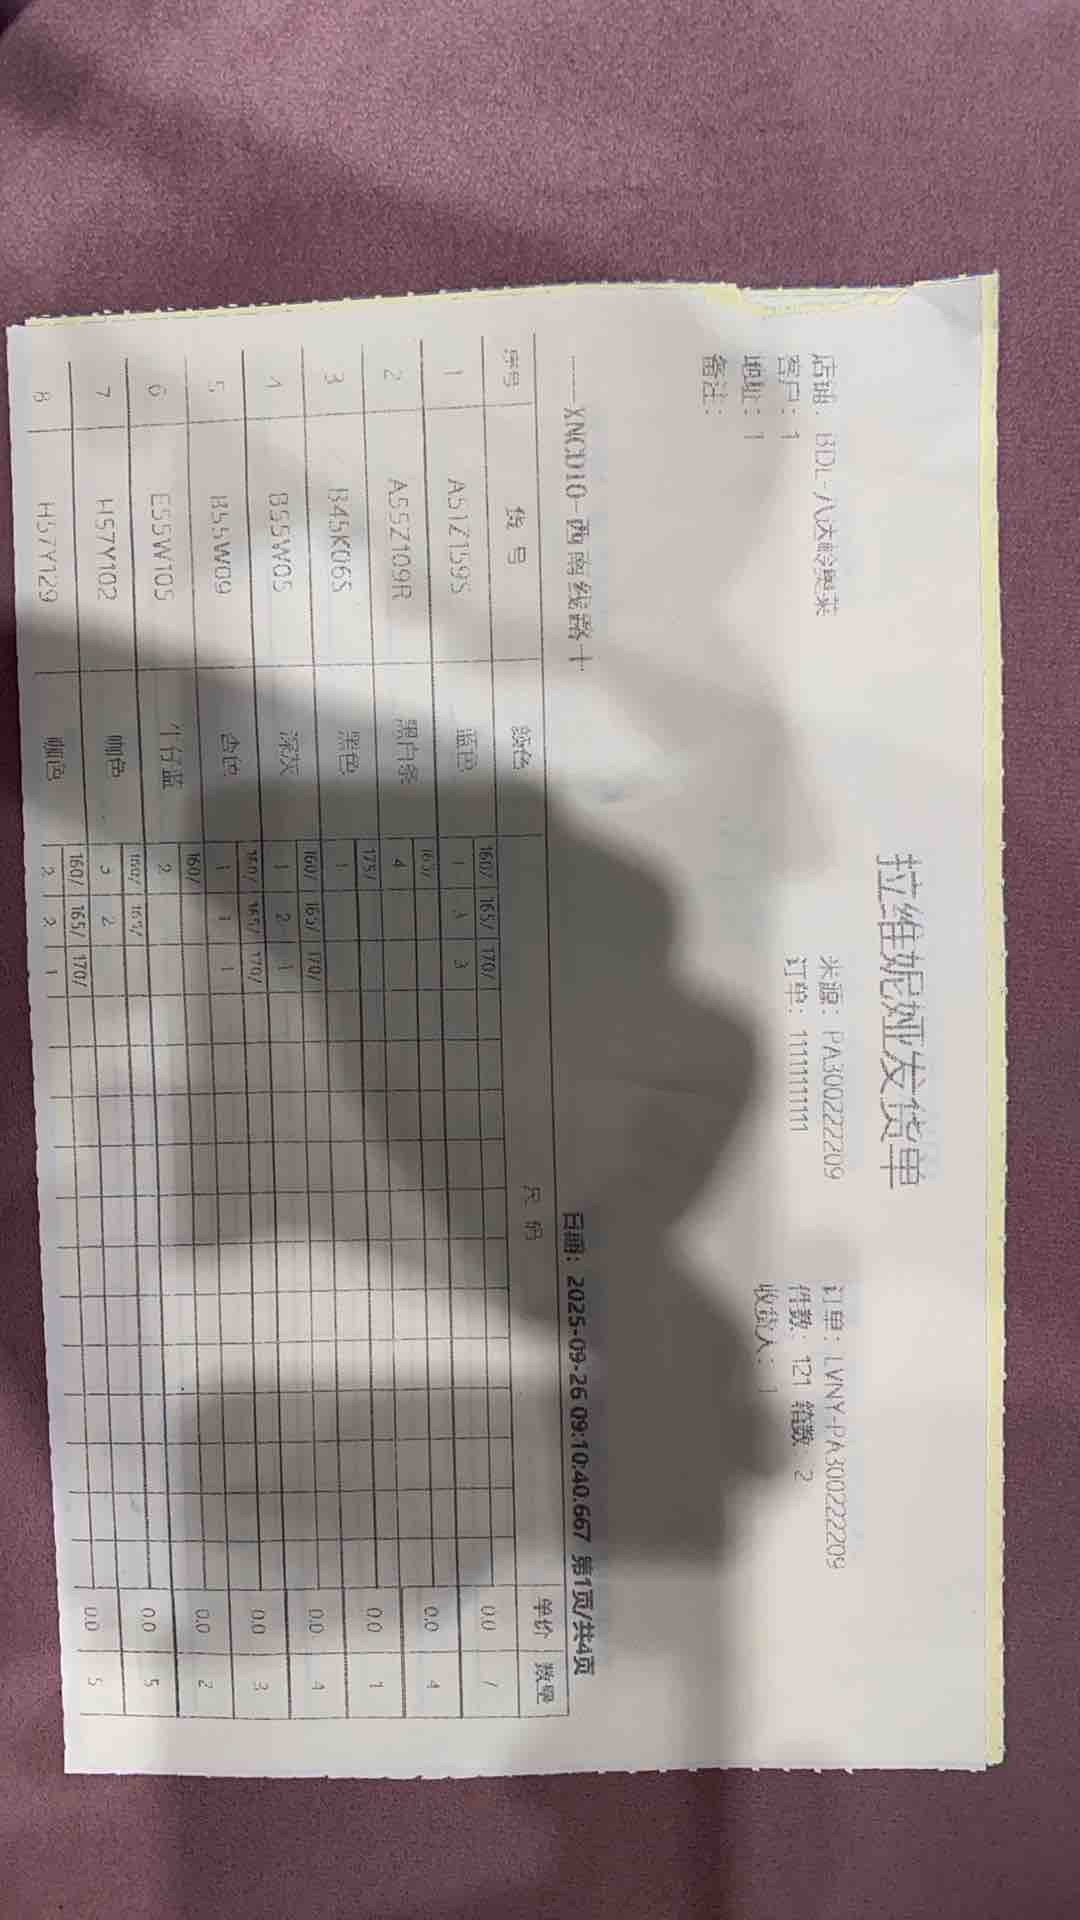 拉维妮娅发货单
店铺: BDL-八达岭奥莱 来源: PA300222209 订单: LVNY-PA300222209
客户: 1 订单: 1111111111 件数: 121 箱数: 2
地址: 1 收货人: 1
备注:
----XNCD10-西南线路十 日期: 2025-09-26 09:10:40.667 第1页/共4页
序号 货号 颜色 尺码 单价 数量
160/ 165/ 170/
1 A51Z159S 蓝色 1 3 3 0.0 7
165/
2 A55Z109R 黑白条 4 0.0 4
175/
3 B45K06S 黑色 1 0.0 1
160/ 165/ 170/
4 B55W05 深灰 1 2 1 0.0 4
160/ 165/ 170/
5 B55W09 杏色 1 1 1 0.0 3
160/
6 E55W105 牛仔蓝 2 0.0 2
160/ 165/
7 H57Y102 咖色 3 2 0.0 5
160/ 165/ 170/
8 H57Y129 咖色 2 2 1 0.0 5